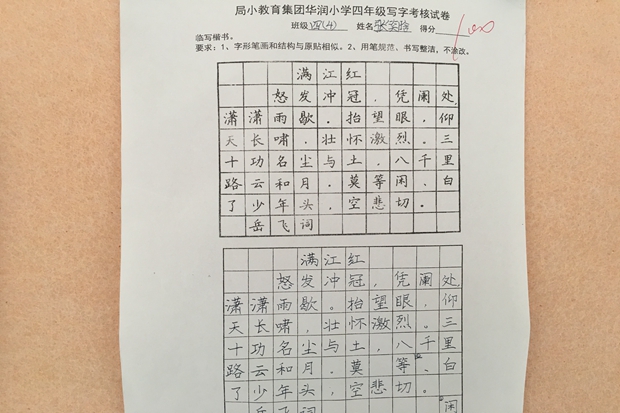 局小教育集团华润小学四年级写字考核试卷
班级 四(4) 姓名 得分 100
临写楷书。
要求：1、字形笔画和结构与原贴相似。2、用笔规范、书写整洁，不涂改。
满江红
怒发冲冠，凭阑处，
潇潇雨歇。抬望眼，仰
天长啸，壮怀激烈。三
十功名尘与土，八千里
路云和月。莫等闲、白
了少年头，空悲切。
岳飞词
满江红
怒发冲冠，凭阑处，
潇潇雨歇。抬望眼，仰
天长啸，壮怀激烈。三
十功名尘与土，八千里
路云和月。莫等、白
了少年头，空悲切。
岳飞词 闲